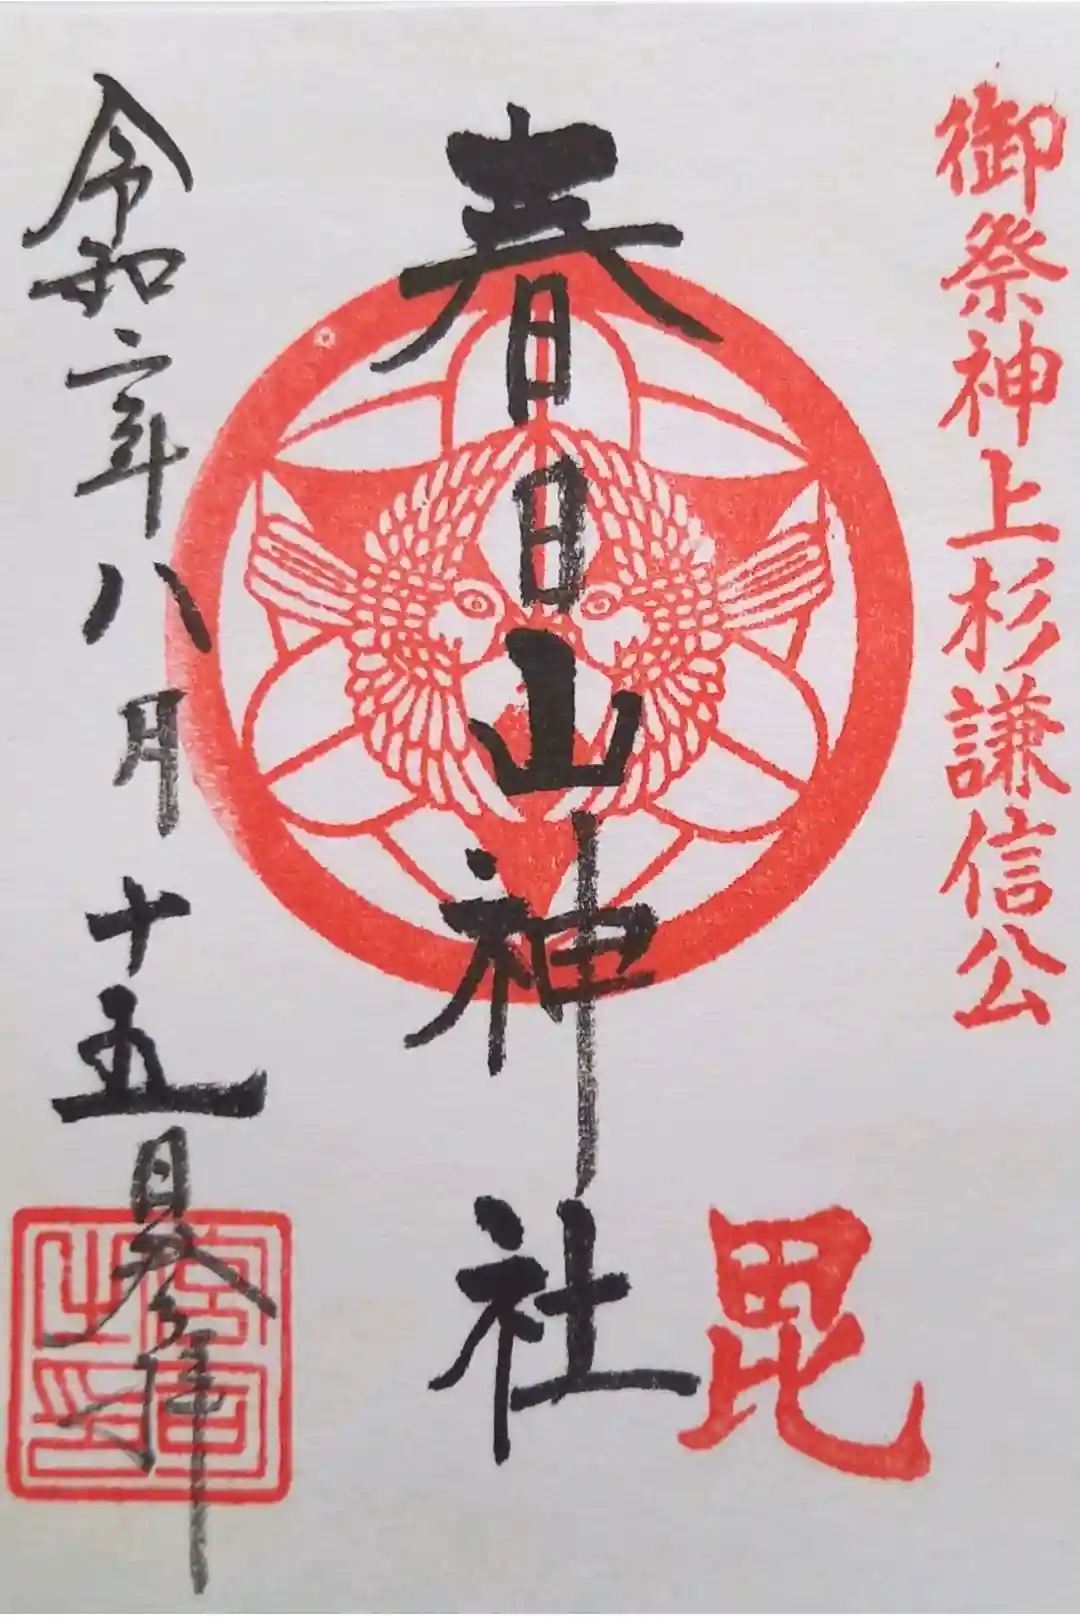 御祭神上杉謙信公
毘
春日山神社
令和二年八月十五日参拝
宮司之印